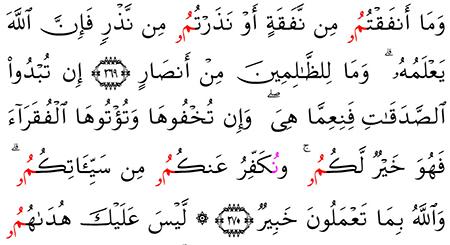 وَمَا أَنفَقْتُمُۥ مِن نَّفَقَةٍ أَوْ نَذَرْتُمُۥ مِن نَّذْرٖ فَإِنَّ اَللَّهَ
يَعْلَمُهُۥۗ وَمَا لِلظَّٰلِمِينَ مِنْ أَنصَارٍ ٢٦٩ إِن تُبْدُواْ
اُلصَّدَقَٰتِ فَنِعِمَّا هِيَۖ وَإِن تُخْفُوهَا وَتُؤْتُوهَا اَلْفُقَرَآءَ
فَهُوَ خَيْرٌ لَّكُمُۥۚ وَنُكَفِّرُ عَنكُمُۥ مِن سَيِّـَٔاتِكُمُۥۗ
وَاللَّهُ بِمَا تَعْمَلُونَ خَبِيرٌ ٢٧٠ ۞ لَّيْسَ عَلَيْكَ هُدَىٰهُمُۥ